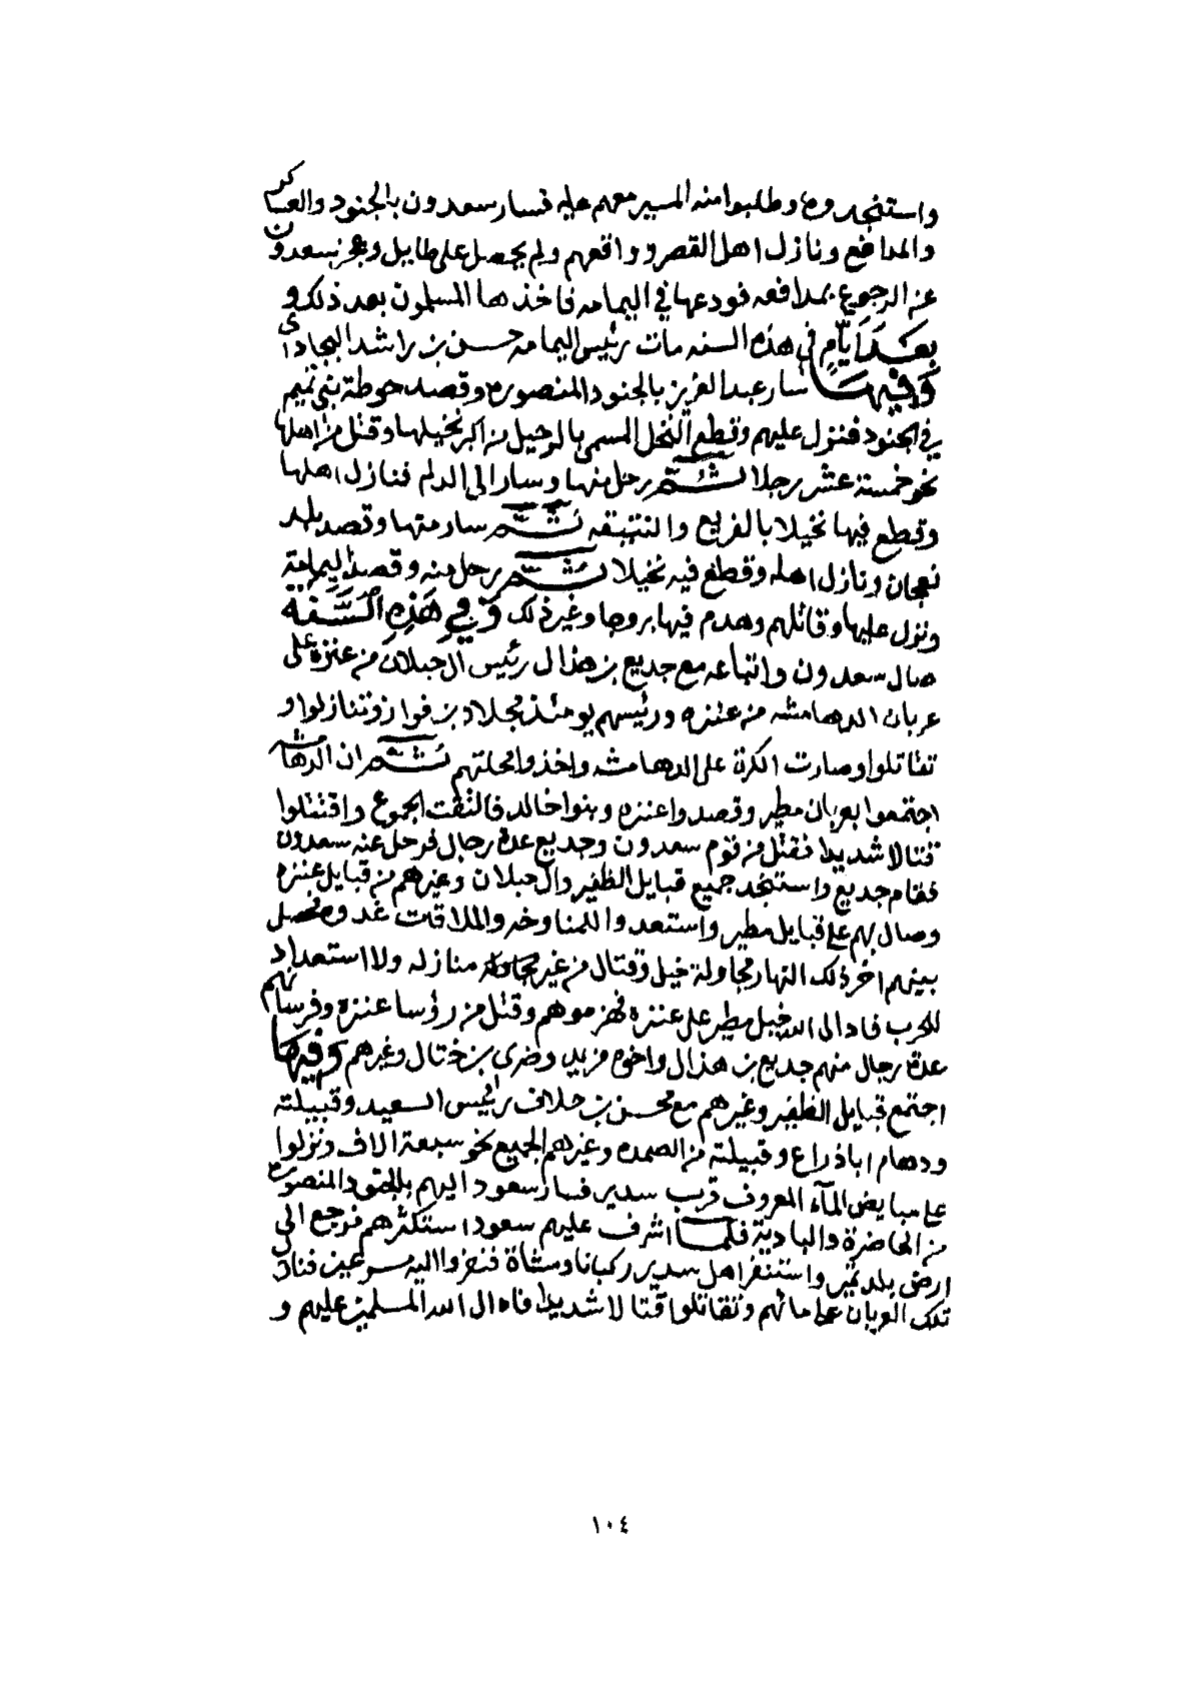 واستنجدوه وطلبوا منه المسير معهم عليه فسار سعدون بالجنود والعساكر
والمدافع ونازل اهل القصر وواقعهم ولم يحصل على طايل وعجز سعدون
عن الرجوع بمدافعه فودعها في اليمامه فاخذها المسلمون بعد ذلك و
بعد ايام في هذه السنه مات رئيس اليمامه حسن بن راشد البجادي
وفيها سار عبدالعزيز بالجنود المنصوره وقصد حوطة بني تميم
في الجنود فنزل عليهم وقطع النخل المسمى بالرحيل من اكبر نخيلها وقتل من اهلها
نحو خمسة عشر رجلا ثم رحل منها وسار الى الدلم فنازل اهلها
وقطع فيها نخيلا بالفريع والنتيقه ثم سار منها وقصد بلد
نعجان ونازل اهله وقطع فيه نخيلا ثم رحل منه وقصد اليمامة
ونزل عليها وقاتلهم وهدم فيها بروجا وغير ذلك وفي هذه السنه
صال سعدون واتباعه مع جديع بن هذال رئيس ال حبلان من عنزه على
عربان الدهامشه من عنزه ورئيسهم يومئذ مجلاد بن فواز وتنازلوا و
تقاتلوا وصارت الكرة على الدهامشه واخذوا محلتهم ثم ان الدهامشه
اجتمعوا بعربان مطير وقصدوا عنزه وبنوا خالد فالتقت الجموع واقتتلوا
قتالا شديدا فقتل من قوم سعدون وجديع عدة رجال فرحل عنه سعدون
فقام جديع واستنجد جميع قبايل الظفير وال حبلان وغيرهم من قبايل عنزه
وصال بهم على قبايل مطير واستعدوا للمناوخه والملاقات غدا وحصل
بينهم اخر ذلك النهار مجاولة خيل وقتال من غير منازله ولا استعداد
للحرب فادال الله خيل مطير على عنزه فهزموهم وقتل من رؤسا عنزه وفرسانهم
عدة رجال منهم جديع بن هذال واخوه مزيد وضرى بن ختال وغيرهم وفيها
اجتمع قبايل الظفير وغيرهم مع محسن بن حلاف رئيس السعيد وقبيلته
ودهام اباذراع وقبيلته من الصمده وغيرهم الجميع نحو سبعة الاف ونزلوا
على مبايض المآء المعروف قرب سدير فسار سعود اليهم بالجنود المنصوره
من الحاضرة والبادية فلما اشرف عليهم سعود استكثرهم فرجع الى
ارض بلد تمير واستنفر اهل سدير ركبانا ومشاة فنفروا اليه مسرعين فنازل
تلك العربان على مائهم وتقاتلوا قتالا شديدا فادال الله المسلمين عليهم و
١٠٤